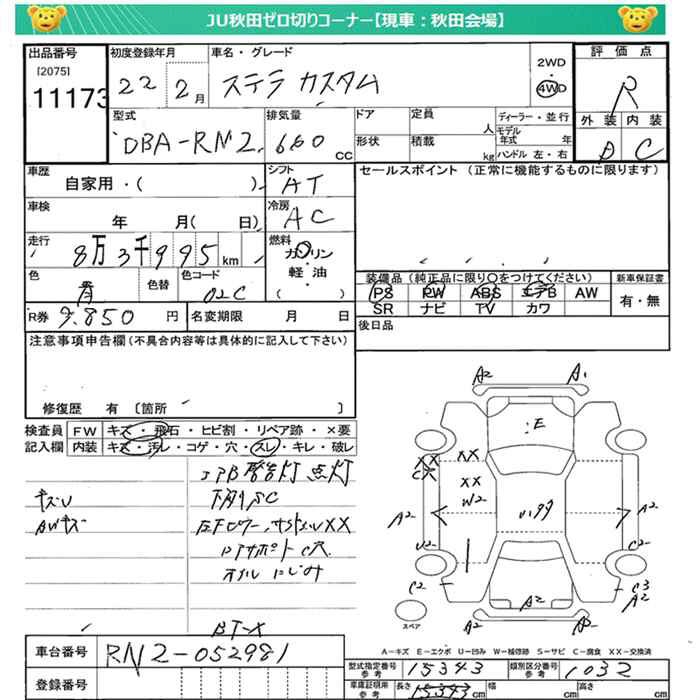 JU秋田ゼロ切りコーナー【現車：秋田会場】
出品番号 初度登録年月 車名・グレード 2WD 評価点
[2075] 22 2月 ステラ カスタム ・ 4WD R
11173
型式 排気量 ドア 定員 人 ディーラー・並行 外装 内装
モデル年式 年
DBA-RN2 660 CC 形状 積載 kg ハンドル 左・右 D C
車歴 シフト セールスポイント（正常に機能するものに限ります）
自家用・（ ） AT
車検 冷房
年 月（ 日） AC
走行 燃料
8万3千995km ガソリン
軽・油
色 色替 色コード （ ） 装備品（純正品に限り○をつけてください） 新車保証書
青 02C PS PW ABS エアB AW 有・無
SR ナビ TV カワ
R券 9.850円 名変期限 月 日 後日品
注意事項申告欄（不具合内容等は具体的に記入して下さい）
修復歴 有 〔箇所 〕
検査員 FW キズ・飛石・ヒビ割・リペア跡・×要
記入欄 内装 キズ・汚レ・コゲ・穴・スレ・キレ・破レ
エアB警告灯点灯
キズU 下廻りSC
AWキズ
オイルにじみ
BT-X
A2 A1
E
XX XX
C穴
XX
W2
A2 A2
U2 C2
C2 C3
A2 A2
A2
スペア
A－キズ E－エクボ U－凹み W－補修跡 S－サビ C－腐食 XX－交換済
車台番号 RN2-052981
型式指定番号 参考 15343 類別区分番号 参考 1032
登録番号 車庫証明用 参考 長さ cm 幅 cm 高さ cm